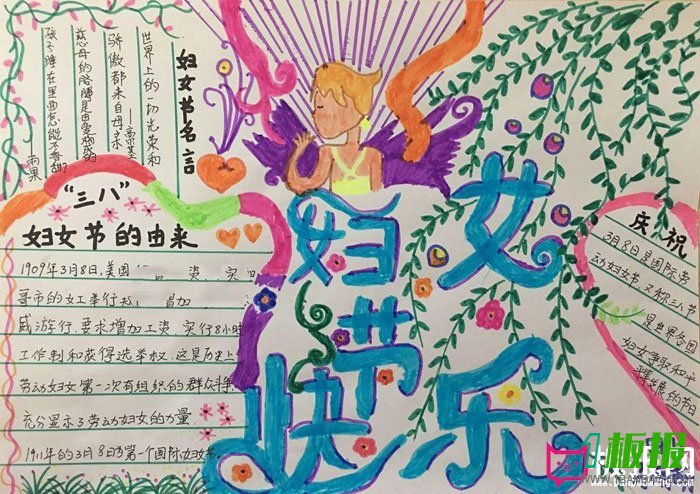 妇女节名言
世界上的一切光荣和
骄傲都来自母亲
——高尔基
慈母的胳膊是由爱构成的
孩子睡在里面怎能不香甜?
——雨果
“三八”
妇女节的由来
1909年3月8日,美国 资 实
哥市的女工举行 增加
威游行,要求增加工资,实行8小时
工作制和获得选举权,这是历史上
劳动妇女第一次有组织的群众斗争
充分显示了劳动妇女的力量.
1911年的3月8日为第一个国际妇女节.
妇女
节
快乐
庆祝
3月8日是国际劳
动妇女节,又称三八节
是世界各国
妇女争取和平
发展的节日
板报